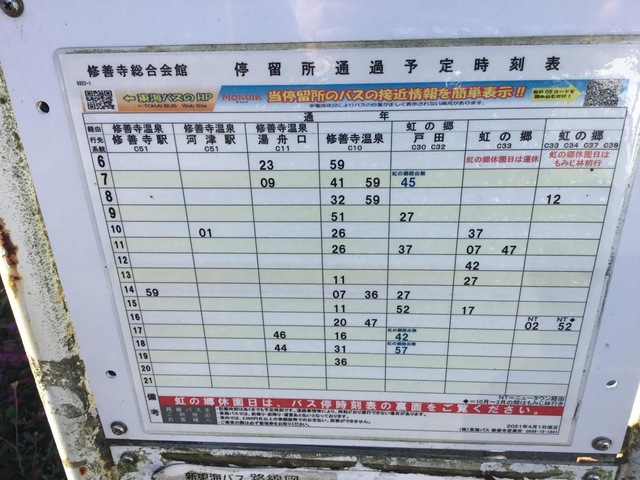 修善寺総合会館 停留所通過予定時刻表
←東海バスのHP
TOKAI BUS Web Site
当停留所のバスの接近情報を簡単表示!!
通 年
経由 修善寺温泉 修善寺温泉 虹の郷
行先 修善寺駅 河津駅 湯舟口 修善寺温泉 戸田 虹の郷
系統 C51 C51 C11 C10 C30 C32 C33 C33 C34 C37 C38
6 23 59 虹の郷休園日は運休 虹の郷休園日はもみじ林前行
7 09 41 59 45
8 32 59 12
9 51 27
10 01 26 37
11 26 37 07 47
12 42
13 11 27
14 59 07 36 27
15 11 52 17
16 20 47 NT 02 NT◆ 52
17 46 16 42
18 44 31 57
19 36
20
21
NT=ニュータウン経由
備考 虹の郷休園日は、バス停時刻表の裏面をご覧ください。
2021年4月1日改正
新東海バス 路線図